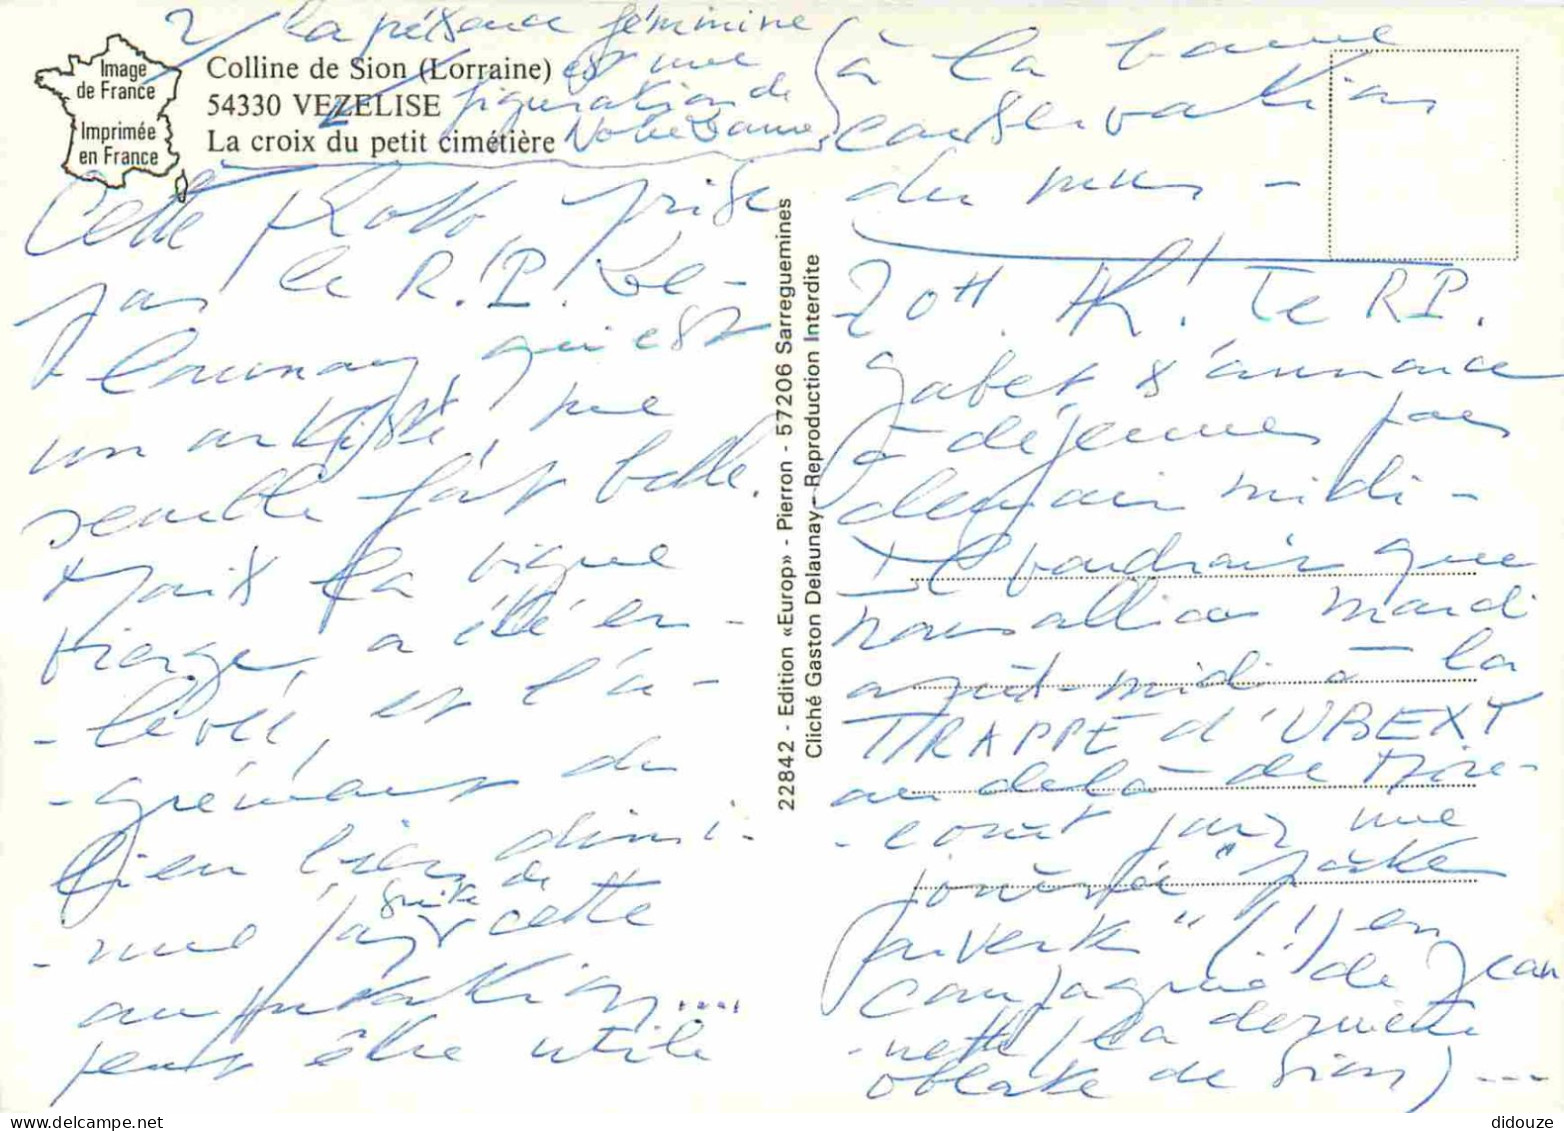 2/ la présence féminine
est une
figuration de
Notre Dame
Image
de France
Imprimée
en France
Colline de Sion (Lorraine)
54330 VEZELISE
La croix du petit cimétière
Cette photo prise
par le R.P. De-
launay, qui est
un artiste, me
semble fort belle.
Mais la vigne
vierge, a été en-
-levée, et l'a-
-grément du
lieu bien dimi-
-nué par suite de
cette
amputation....
peut être utile
à la bonne
conservation
du mur -
22842 - Edition «Europ» - Pierron - 57206 Sarreguemines
Cliché Gaston Delaunay - Reproduction Interdite
20H. Ah! Le RP.
s'annonce
à déjeuner pour
demain midi -
Il voudrait que
nous allions mardi
après-midi à la
TRAPPE d'UBEXY
au delà de Mire-
-court pour une
journée "porte
ouverte" (!) en
compagnie de Jean
-nette (la dernière
oblate de Sion) ---
didouze